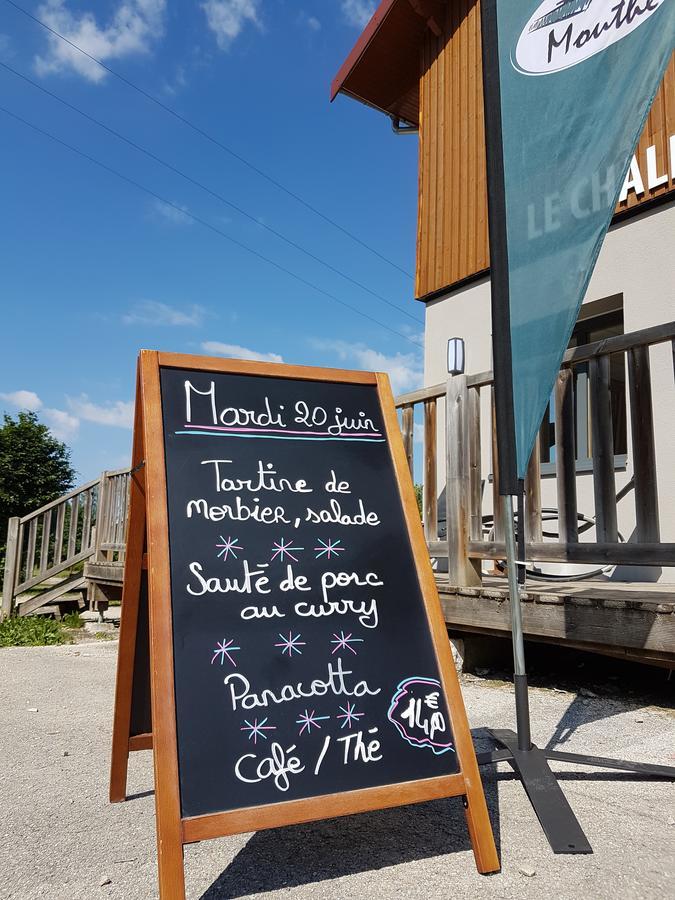 Mouthe
LE CHAL
Mardi 20 juin
Tartine de
morbier, salade
Sauté de porc
au curry
Panacotta
14,0€
Café / Thé